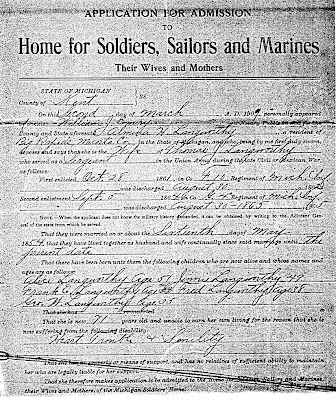 APPLICATION FOR ADMISSION
TO
Home for Soldiers, Sailors and Marines
Their Wives and Mothers
STATE OF MICHIGAN
County of Kent
On this Second day of March A. D. 1909, personally appeared
County and State aforesaid Almira H. Langworthy, a resident of
Big Rapids Mecosta Co. in the State of Michigan, and who, being by me first duly sworn,
deposes and says that she is the Wife of Thomas J. Langworthy
who served as Sergeant in the Union Army during the late Civil or Mexican War,
as follows:
First enlisted Oct 28 1861 in Regiment of Mich
was discharged August 30
Second enlistment Sept 5 1864 in Regiment of Mich
was discharged August 1865
NOTE.—When the applicant does not know the military history forwarded, it can be obtained by writing to the Adjutant General
of the state from which he served.
That they were married on or about the Sixteenth day of May
1854 that they have lived together as husband and wife continuously since said marriage until the
present date
That there have been born unto them the following children who are now alive and whose names and
ages are as follows:
Langworthy Age Langworthy
Frank Langworthy Age Fred Langworthy Age 38
Geo. W. Langworthy Age
That she has remarried
That she is now 71 years old and unable to earn her own living for the reason that she is
now suffering from the following disability:
Heart Trouble & Senility
That she has no property or means of support, and has no relatives of sufficient ability to maintain
her who are legally liable for her support.
That she therefore makes application to be admitted to the home for Soldiers, Sailors and Marines
their Wives and Mothers, of the Michigan Soldiers' Home.